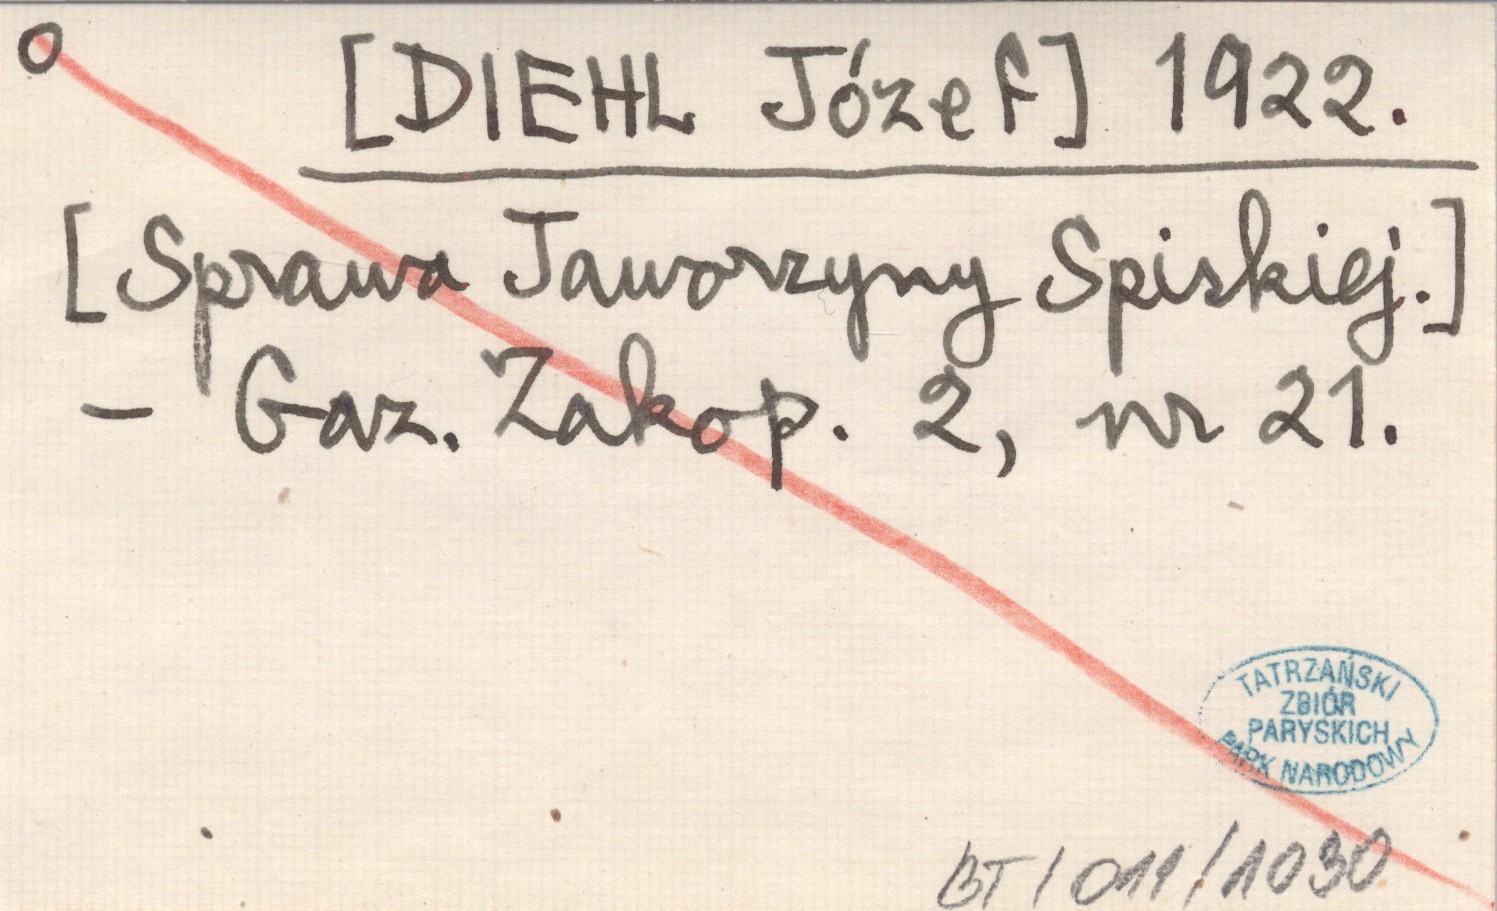 o [DIEHL Józef] 1922.
[Sprawa Jaworzyny Spiskiej.]
- Gaz. Zakop. 2, nr 21.
TATRZAŃSKI
ZBIÓR
PARYSKICH
PARK NARODOWY
BT/011/1030